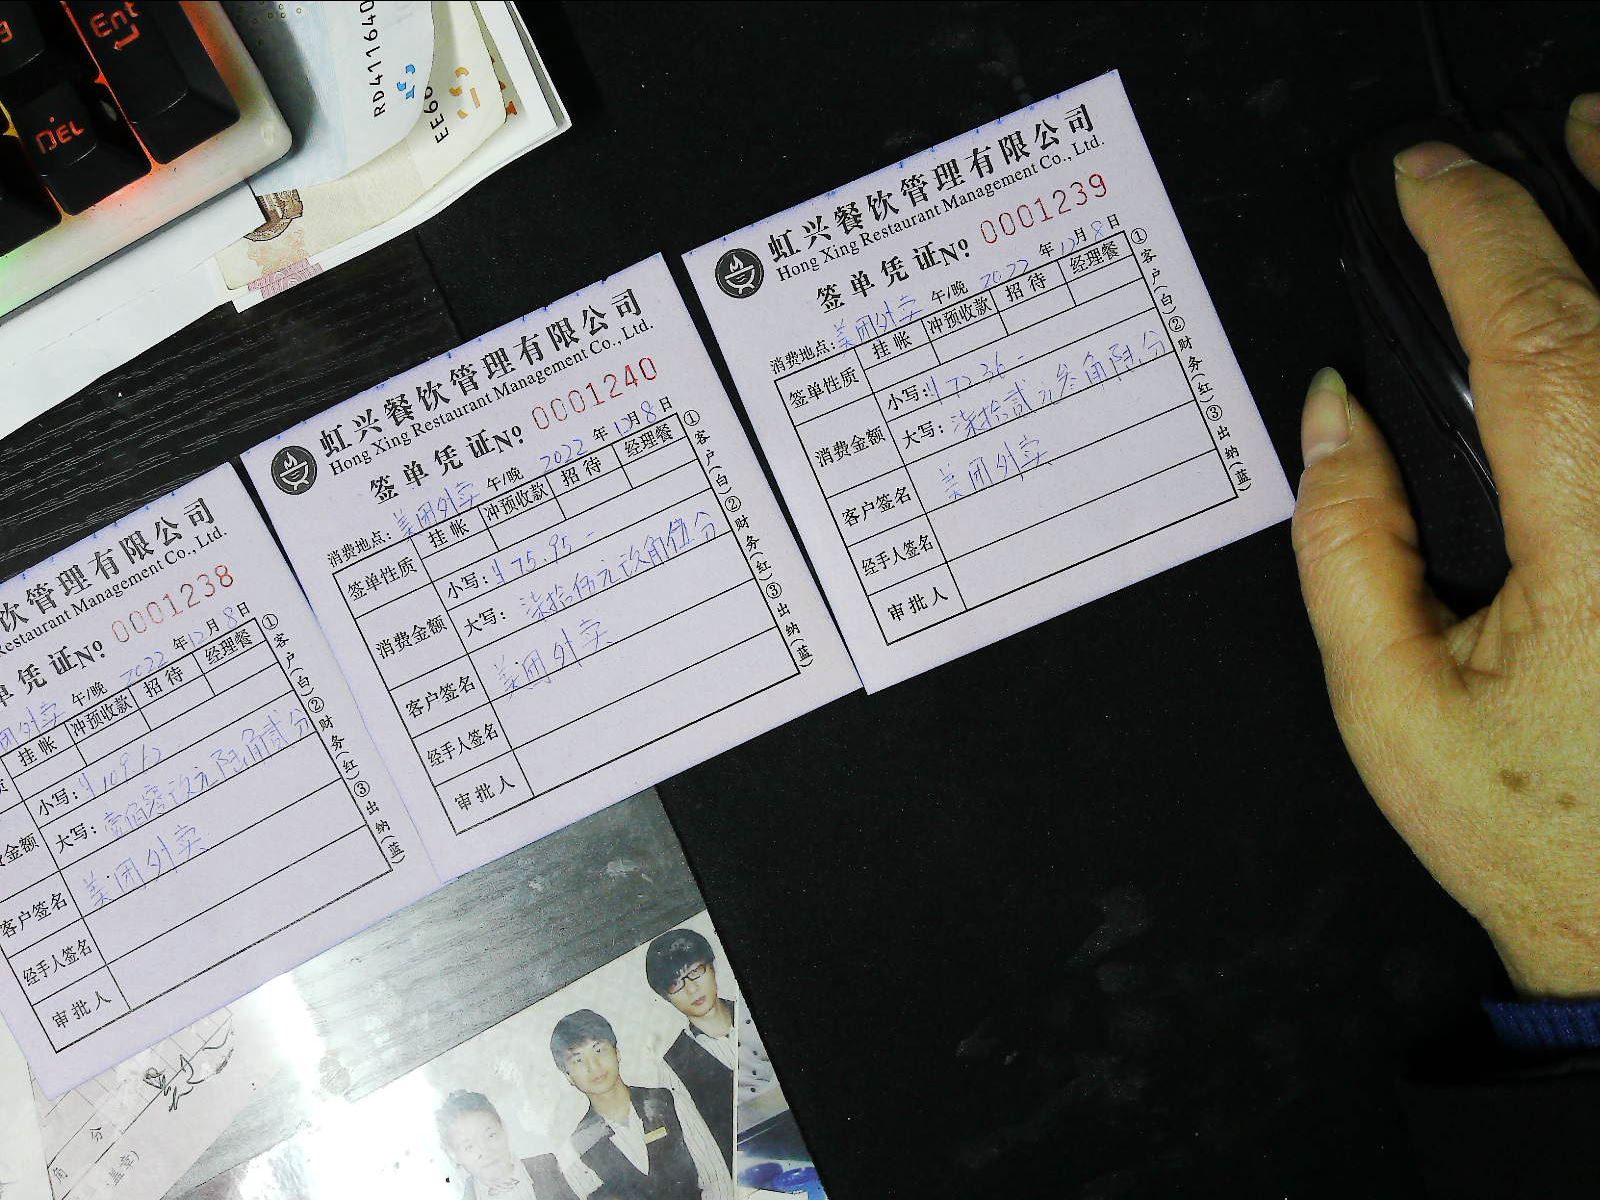 Ent
DEL
RD411640
EE60
虹兴餐饮管理有限公司
Hong Xing Restaurant Management Co., Ltd.
签单凭证 № 0001239
消费地点: 美团外卖 午/晚 2022 年 12 月 8 日
签单性质 挂帐 冲预收款 招待 经理餐
消费金额 小写: ¥72.36-
大写: 柒拾贰元叁角陆分
客户签名 美团外卖
经手人签名
审批人
①客户(白)②财务(红)③出纳(蓝)
虹兴餐饮管理有限公司
Hong Xing Restaurant Management Co., Ltd.
签单凭证 № 0001240
消费地点: 美团外卖 午/晚 2022 年 12 月 8 日
签单性质 挂帐 冲预收款 招待 经理餐
消费金额 小写: ¥75.95-
大写: 柒拾伍元玖角伍分
客户签名 美团外卖
经手人签名
审批人
①客户(白)②财务(红)③出纳(蓝)
饮管理有限公司
Restaurant Management Co., Ltd.
单凭证 № 0001238
团外卖 午/晚 2022 年 12 月 8 日
质 挂帐 冲预收款 招待 经理餐
金额 小写: ¥109.62
大写: 壹佰零玖元陆角贰分
客户签名 美团外卖
经手人签名
审批人
①客户(白)②财务(红)③出纳(蓝)
角 分
盖章)